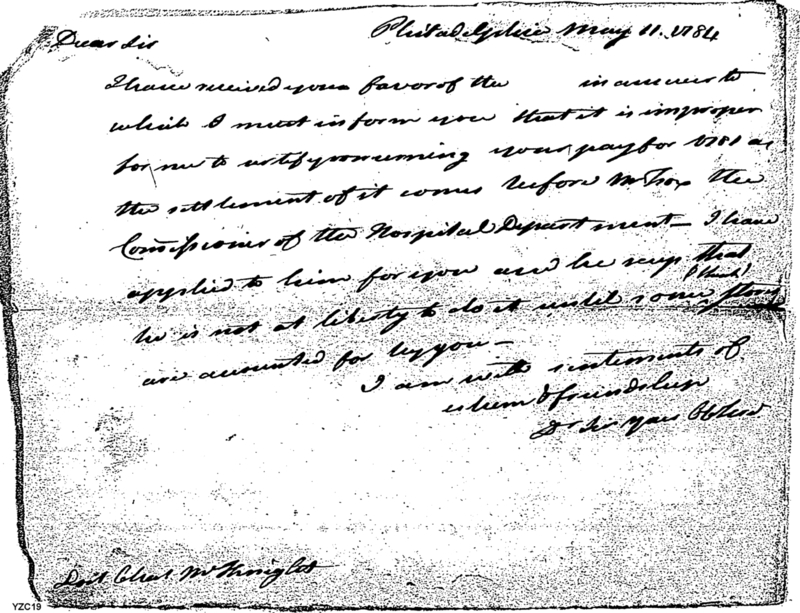 Philadelphia May 11. 1784
Dear Sir
I have received your favor of the in answer to
which I must inform you that it is improper
for me to certify your pay for 1781 as
the settlement of it comes before Mr the
Commissioner of the Hospital Department — I have
applied to him for you and he says that
he is not at liberty to do it until some (I think)
are accounted for by you —
I am with sentiments of
esteem & friendship
Dr Sir your
Doct Chas McKnight
YZC19